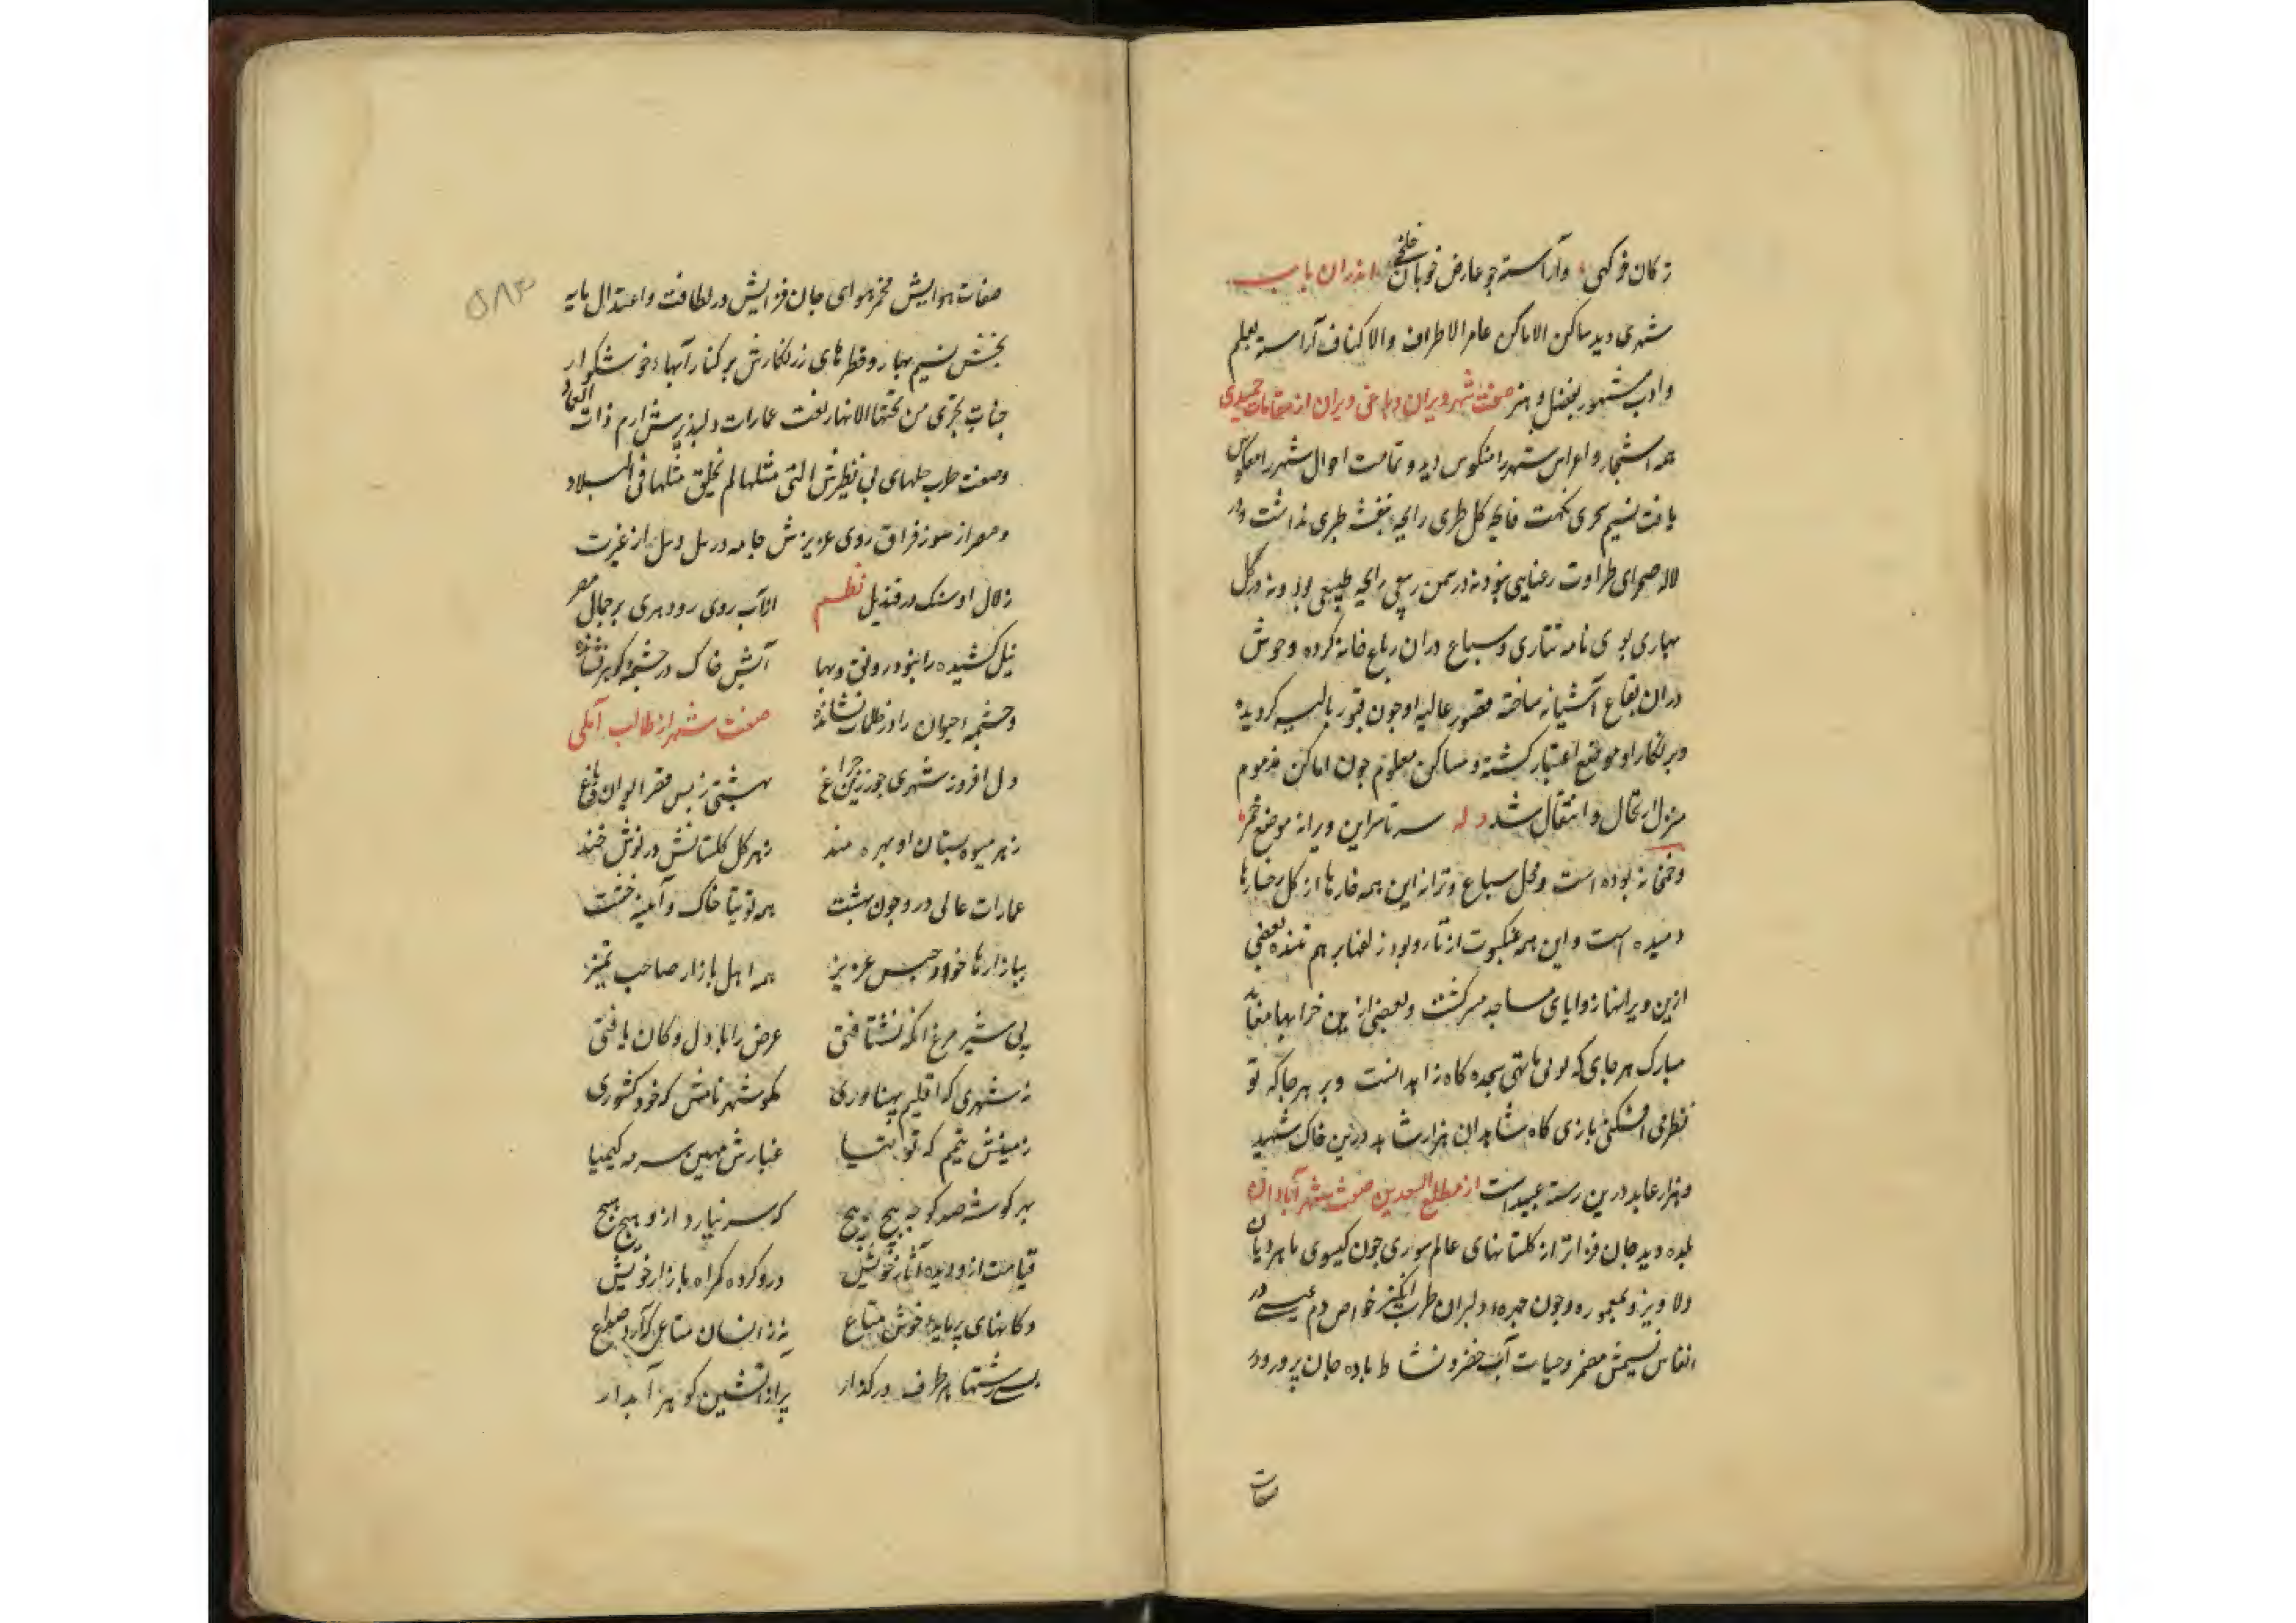 ترکان خرگهی و آراسته چو عارض خوبان خلخی اندران باب
شهری دید ساکن الاماکن عامر الاطراف والاکناف آراسته بعلم
و ادب مشهور بفضل و هنر صفت شهر ویران و باغی ویران از مقامات حمیدی
همه اشجار و اغراس شهر را منکوس دید و تمامت احوال شهر را معکوس
یافت نسیم سحری نکهت کل طری رایحه بنفشه طبری نداشت و در
لاله صحرای طراوت رعنایی نبود نه در سمن ربیعی رایحه طبیعی بود و نه در گل
بهاری بوی نافه تتاری و سباع دران رباع خانه کرده و وحوش
دران بقاع آشیانه ساخته قصور عالیه او چون قبور بالیه کردیده
و بر نکار او موضع اعتبار کشته و مساکن معلوم چون اماکن مذموم
منزل ارتحال و انتقال شد وله سرتاسر این ویرانه موضع خمر
و خمخانه بوده است و محل سباع و ترانه این همه خارها از کل رخسارها
دمیده است و این همه عنکبوت از تار و پود زلفها بر هم تنیده بعضی
ازین ویرانها زوایای مساجد متبرکست و بعضی ازین خرابها مقامات
مبارک هر جای که تو پای نهی سجده کاه زاهدانست و بر هر جا که تو
نظر می افکنی بازی کاه شاهدان هزار شاهد درین خاک شهید
و هزار عابد درین رسته عبید است از مطلع السعدین صفت شهر آبادان
بلده دید جان فزاتر از کلستانهای عالم سوری چون کیسوی ماهرویان
دلاویز و معموره چون چهره دلبران طرب انگیز خواص دم عیسی در
انفاس نسیمش مضمر و حیات آب خضر و نشاط باده جان پرور در
صفات
۵۸۳
صفات هوایش مخمر هوای جان فزایش در لطافت و اعتدال مایه
بخش نسیم بهار و قطرهای زرنکارش بر کنار آبهاء خوشکوار
جنات تجری من تحتها الانهار نعت عمارات دلپذیرش ارم ذات العماد
وصفت طرب جلهای بی نظیرش التی مثلها لم یخلق مثلها فی البلاد
و مصر از سوز فراق روی عزیزش جامه در نیل و نیل از غیرت
زلال او سنک در قندیل نظم الا آب روی رود هری بر جمال مصر
نیل کشیده را نبود رونق و بها آتش خاک در چشمه کوهر نشانده
و چشمه احیوان را در ظلمات نشانده صفت شهر از طالب آملی
دل افروز شهری چو زرین چراغ بهشتی ز بس قصر ایوان و باغ
ز هر میوه بستان او بهره مند ز هر کل کلستانش در نوش خند
عمارات عالی درو چون بهشت همه توتیا خاک و آیینه خشت
ببازارها خواه جنس عزیز همه اهل بازار صاحب تمیز
پی شیر مرغ آنکه نشتافتی عرض را بابدل دکان یافتی
نه شهری که اقلیم پهناوری مکو شهر نامش که خود کشوری
زمینش نیم که توتیا غبارش مهین سرمه کیمیا
بهر کوشه صد کوچه پیچ پیچ که سر نیارد ازو هیچ هیچ
قیامت ازو دیده آثار خویش درو کرده کم راه بازار خویش
دکانهای پر مایه خوش متاع نه زانسان متاعی که آرد صداع
بسی رشتها هر طرف در کذار پر از آتشین کوهر آبدار